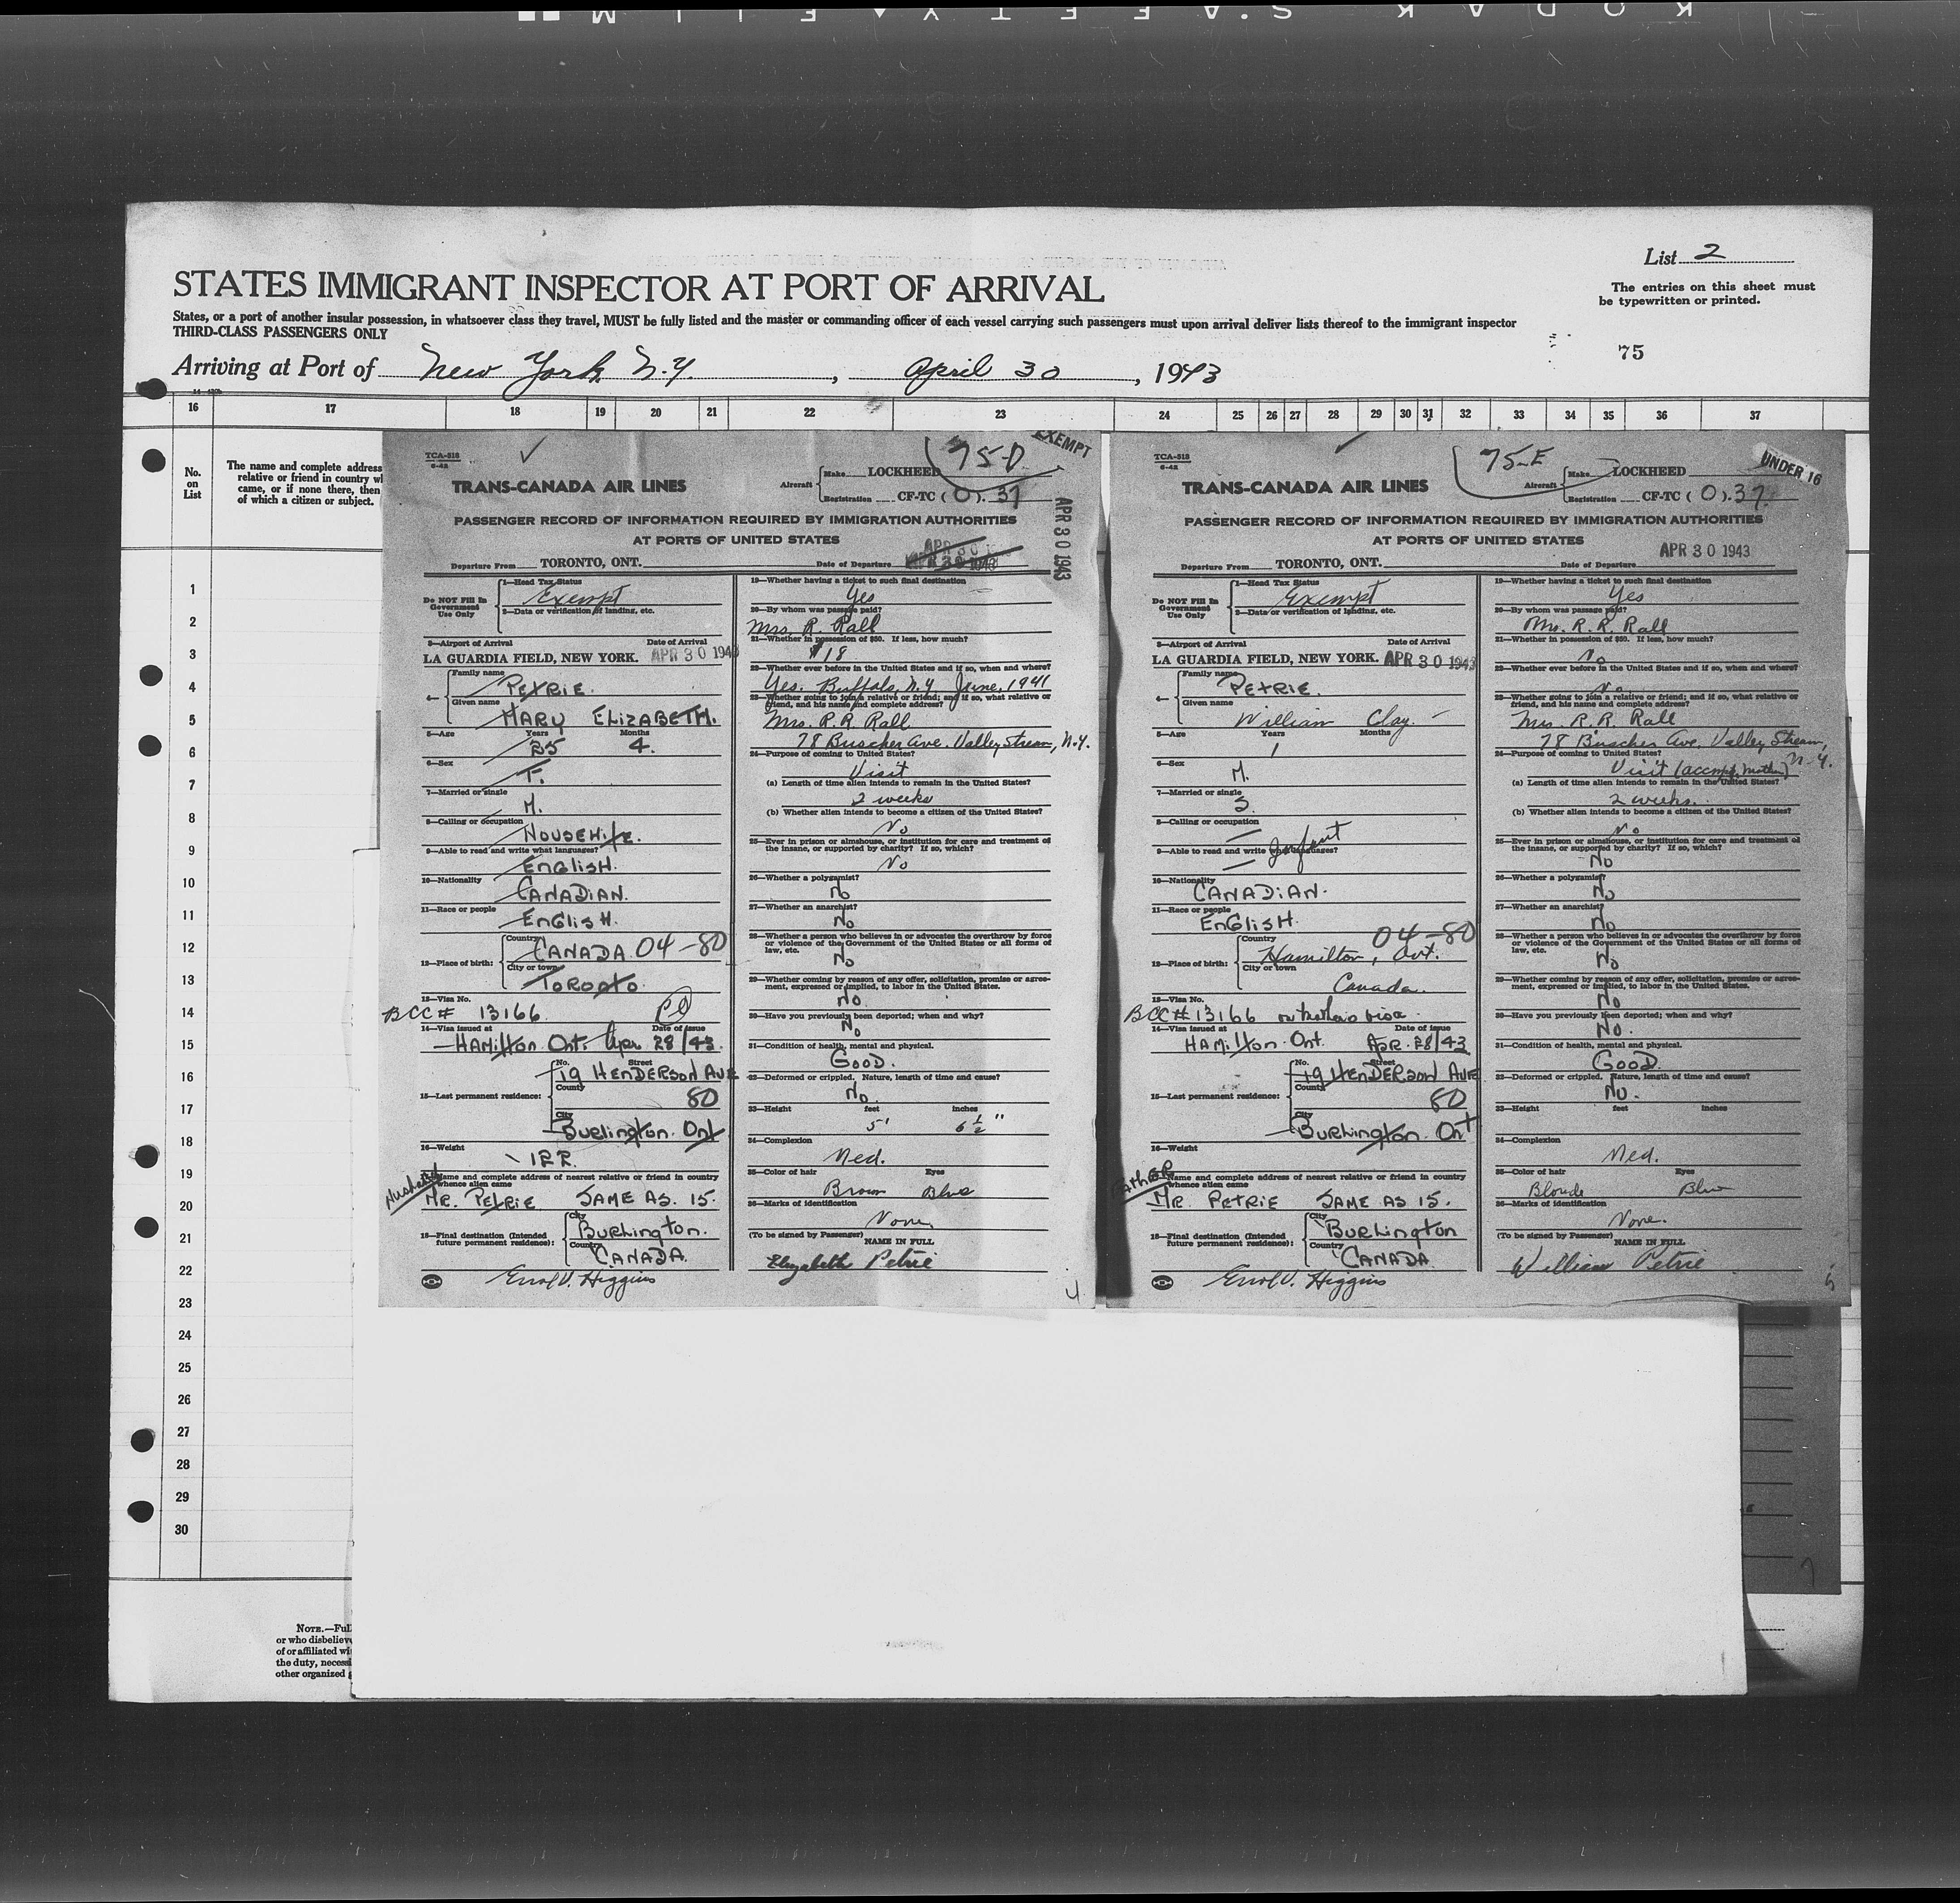 KODAK S.A.FETY FILM
List 2
STATES IMMIGRANT INSPECTOR AT PORT OF ARRIVAL
The entries on this sheet must
be typewritten or printed.
States, or a port of another insular possession, in whatsoever class they travel, MUST be fully listed and the master or commanding officer of each vessel carrying such passengers must upon arrival deliver lists thereof to the immigrant inspector
THIRD-CLASS PASSENGERS ONLY
75
Arriving at Port of New York N.Y., April 30, 1943
16 17 18 19 20 21 22 23 24 25 26 27 28 29 30 31 32 33 34 35 36 37
No.
on
List
The name and complete address
relative or friend in country wh
came, or if none there, then
of which a citizen or subject.
1
2
3
4
5
6
7
8
9
10
11
12
13
14
15
16
17
18
19
20
21
22
23
24
25
26
27
28
29
30
NOTE.—Ful
or who disbeliev
of or affiliated wi
the duty, necess
other organized
TCA-518
6-42
75-D
EXEMPT
Aircraft
Make LOCKHEED
Registration CF-TC (O). 37
TRANS-CANADA AIR LINES
PASSENGER RECORD OF INFORMATION REQUIRED BY IMMIGRATION AUTHORITIES
AT PORTS OF UNITED STATES
APR 30 1943
Departure From TORONTO, ONT. Date of Departure APR 30 1943
Do NOT Fill In
Government
Use Only
1—Head Tax Status
Exempt
2—Data or verification of landing, etc.
3—Airport of Arrival Date of Arrival
LA GUARDIA FIELD, NEW YORK. APR 30 1943
4— Family name
PETRIE.
Given name
MARY ELIZABETH.
5—Age Years Months
25 4.
6—Sex
F.
7—Married or single
M.
8—Calling or occupation
HOUSEWIFE.
9—Able to read and write what languages?
ENGLISH.
10—Nationality
CANADIAN.
11—Race or people
ENGLISH.
12—Place of birth:
Country
CANADA 04-80
City or town
TORONTO.
13—Visa No.
BCC# 13166
14—Visa issued at Date of issue
HAMILTON. Ont. Apr 28/43.
15—Last permanent residence:
No. Street
19 HENDERSON AVE
County
80
City
Burlington. Ont
16—Weight
122.
Husband
17—Name and complete address of nearest relative or friend in country
whence alien came
MR. PETRIE SAME AS. 15.
18—Final destination (Intended
future permanent residence):
City
Burlington.
Country
CANADA.
Errol V. Higgins
19—Whether having a ticket to such final destination
Yes
20—By whom was passage paid?
Mrs. R. Rall
21—Whether in possession of $50. If less, how much?
$18
22—Whether ever before in the United States and if so, when and where?
Yes. Buffalo, N.Y. June, 1941
23—Whether going to join a relative or friend; and if so, what relative or
friend, and his name and complete address?
Mrs. R.R. Rall
78 Buscher Ave. Valley Stream, N.Y.
24—Purpose of coming to United States?
Visit
(a) Length of time alien intends to remain in the United States?
2 weeks
(b) Whether alien intends to become a citizen of the United States?
No
25—Ever in prison or almshouse, or institution for care and treatment of
the insane, or supported by charity? If so, which?
No
26—Whether a polygamist?
No
27—Whether an anarchist?
No
28—Whether a person who believes in or advocates the overthrow by force
or violence of the Government of the United States or all forms of
law, etc.
No
29—Whether coming by reason of any offer, solicitation, promise or agree-
ment, expressed or implied, to labor in the United States.
No.
30—Have you previously been deported; when and why?
No
31—Condition of health, mental and physical.
GOOD.
32—Deformed or crippled. Nature, length of time and cause?
No.
33—Height feet inches
5' 6 1/2 "
34—Complexion
Med.
35—Color of hair Eyes
Brown Blue
36—Marks of identification
None
(To be signed by Passenger) NAME IN FULL
Elizabeth Petrie
4
TCA-518
6-42
75-E
UNDER 16
Aircraft
Make LOCKHEED
Registration CF-TC (O). 37.
TRANS-CANADA AIR LINES
PASSENGER RECORD OF INFORMATION REQUIRED BY IMMIGRATION AUTHORITIES
AT PORTS OF UNITED STATES
APR 30 1943
Departure From TORONTO, ONT. Date of Departure
Do NOT Fill In
Government
Use Only
1—Head Tax Status
Exempt
2—Data or verification of landing, etc.
3—Airport of Arrival Date of Arrival
LA GUARDIA FIELD, NEW YORK. APR 30 1943
4— Family name
PETRIE.
Given name
William Clay.
5—Age Years Months
1
6—Sex
M.
7—Married or single
S.
8—Calling or occupation
Infant
9—Able to read and write what languages?
10—Nationality
CANADIAN.
11—Race or people
ENGLISH.
12—Place of birth:
Country 04-80
Hamilton, Ont.
City or town
Canada.
13—Visa No.
BCC# 13166 on Mother's visa.
14—Visa issued at Date of issue
HAMILTON. Ont. APR. 28/43
15—Last permanent residence:
No. Street
19 HENDERSON AVE
County
80
City
BURLINGTON. Ont
16—Weight
FATHER
17—Name and complete address of nearest relative or friend in country
whence alien came
MR. PETRIE SAME AS 15.
18—Final destination (Intended
future permanent residence):
City
BURLINGTON
Country
CANADA
Errol V. Higgins
19—Whether having a ticket to such final destination
Yes
20—By whom was passage paid?
Mrs. R. R. Rall
21—Whether in possession of $50. If less, how much?
No
22—Whether ever before in the United States and if so, when and where?
No
23—Whether going to join a relative or friend; and if so, what relative or
friend, and his name and complete address?
Mrs. R.R. Rall
78 Buscher Ave. Valley Stream, N.Y.
24—Purpose of coming to United States?
Visit (accmp. mother)
(a) Length of time alien intends to remain in the United States?
2 weeks.
(b) Whether alien intends to become a citizen of the United States?
No
25—Ever in prison or almshouse, or institution for care and treatment of
the insane, or supported by charity? If so, which?
No
26—Whether a polygamist?
No
27—Whether an anarchist?
No
28—Whether a person who believes in or advocates the overthrow by force
or violence of the Government of the United States or all forms of
law, etc.
No
29—Whether coming by reason of any offer, solicitation, promise or agree-
ment, expressed or implied, to labor in the United States.
No
30—Have you previously been deported; when and why?
No.
31—Condition of health, mental and physical.
GOOD.
32—Deformed or crippled. Nature, length of time and cause?
No.
33—Height feet inches
34—Complexion
Med.
35—Color of hair Eyes
Blonde Blue
36—Marks of identification
None.
(To be signed by Passenger) NAME IN FULL
William Petrie
5
7